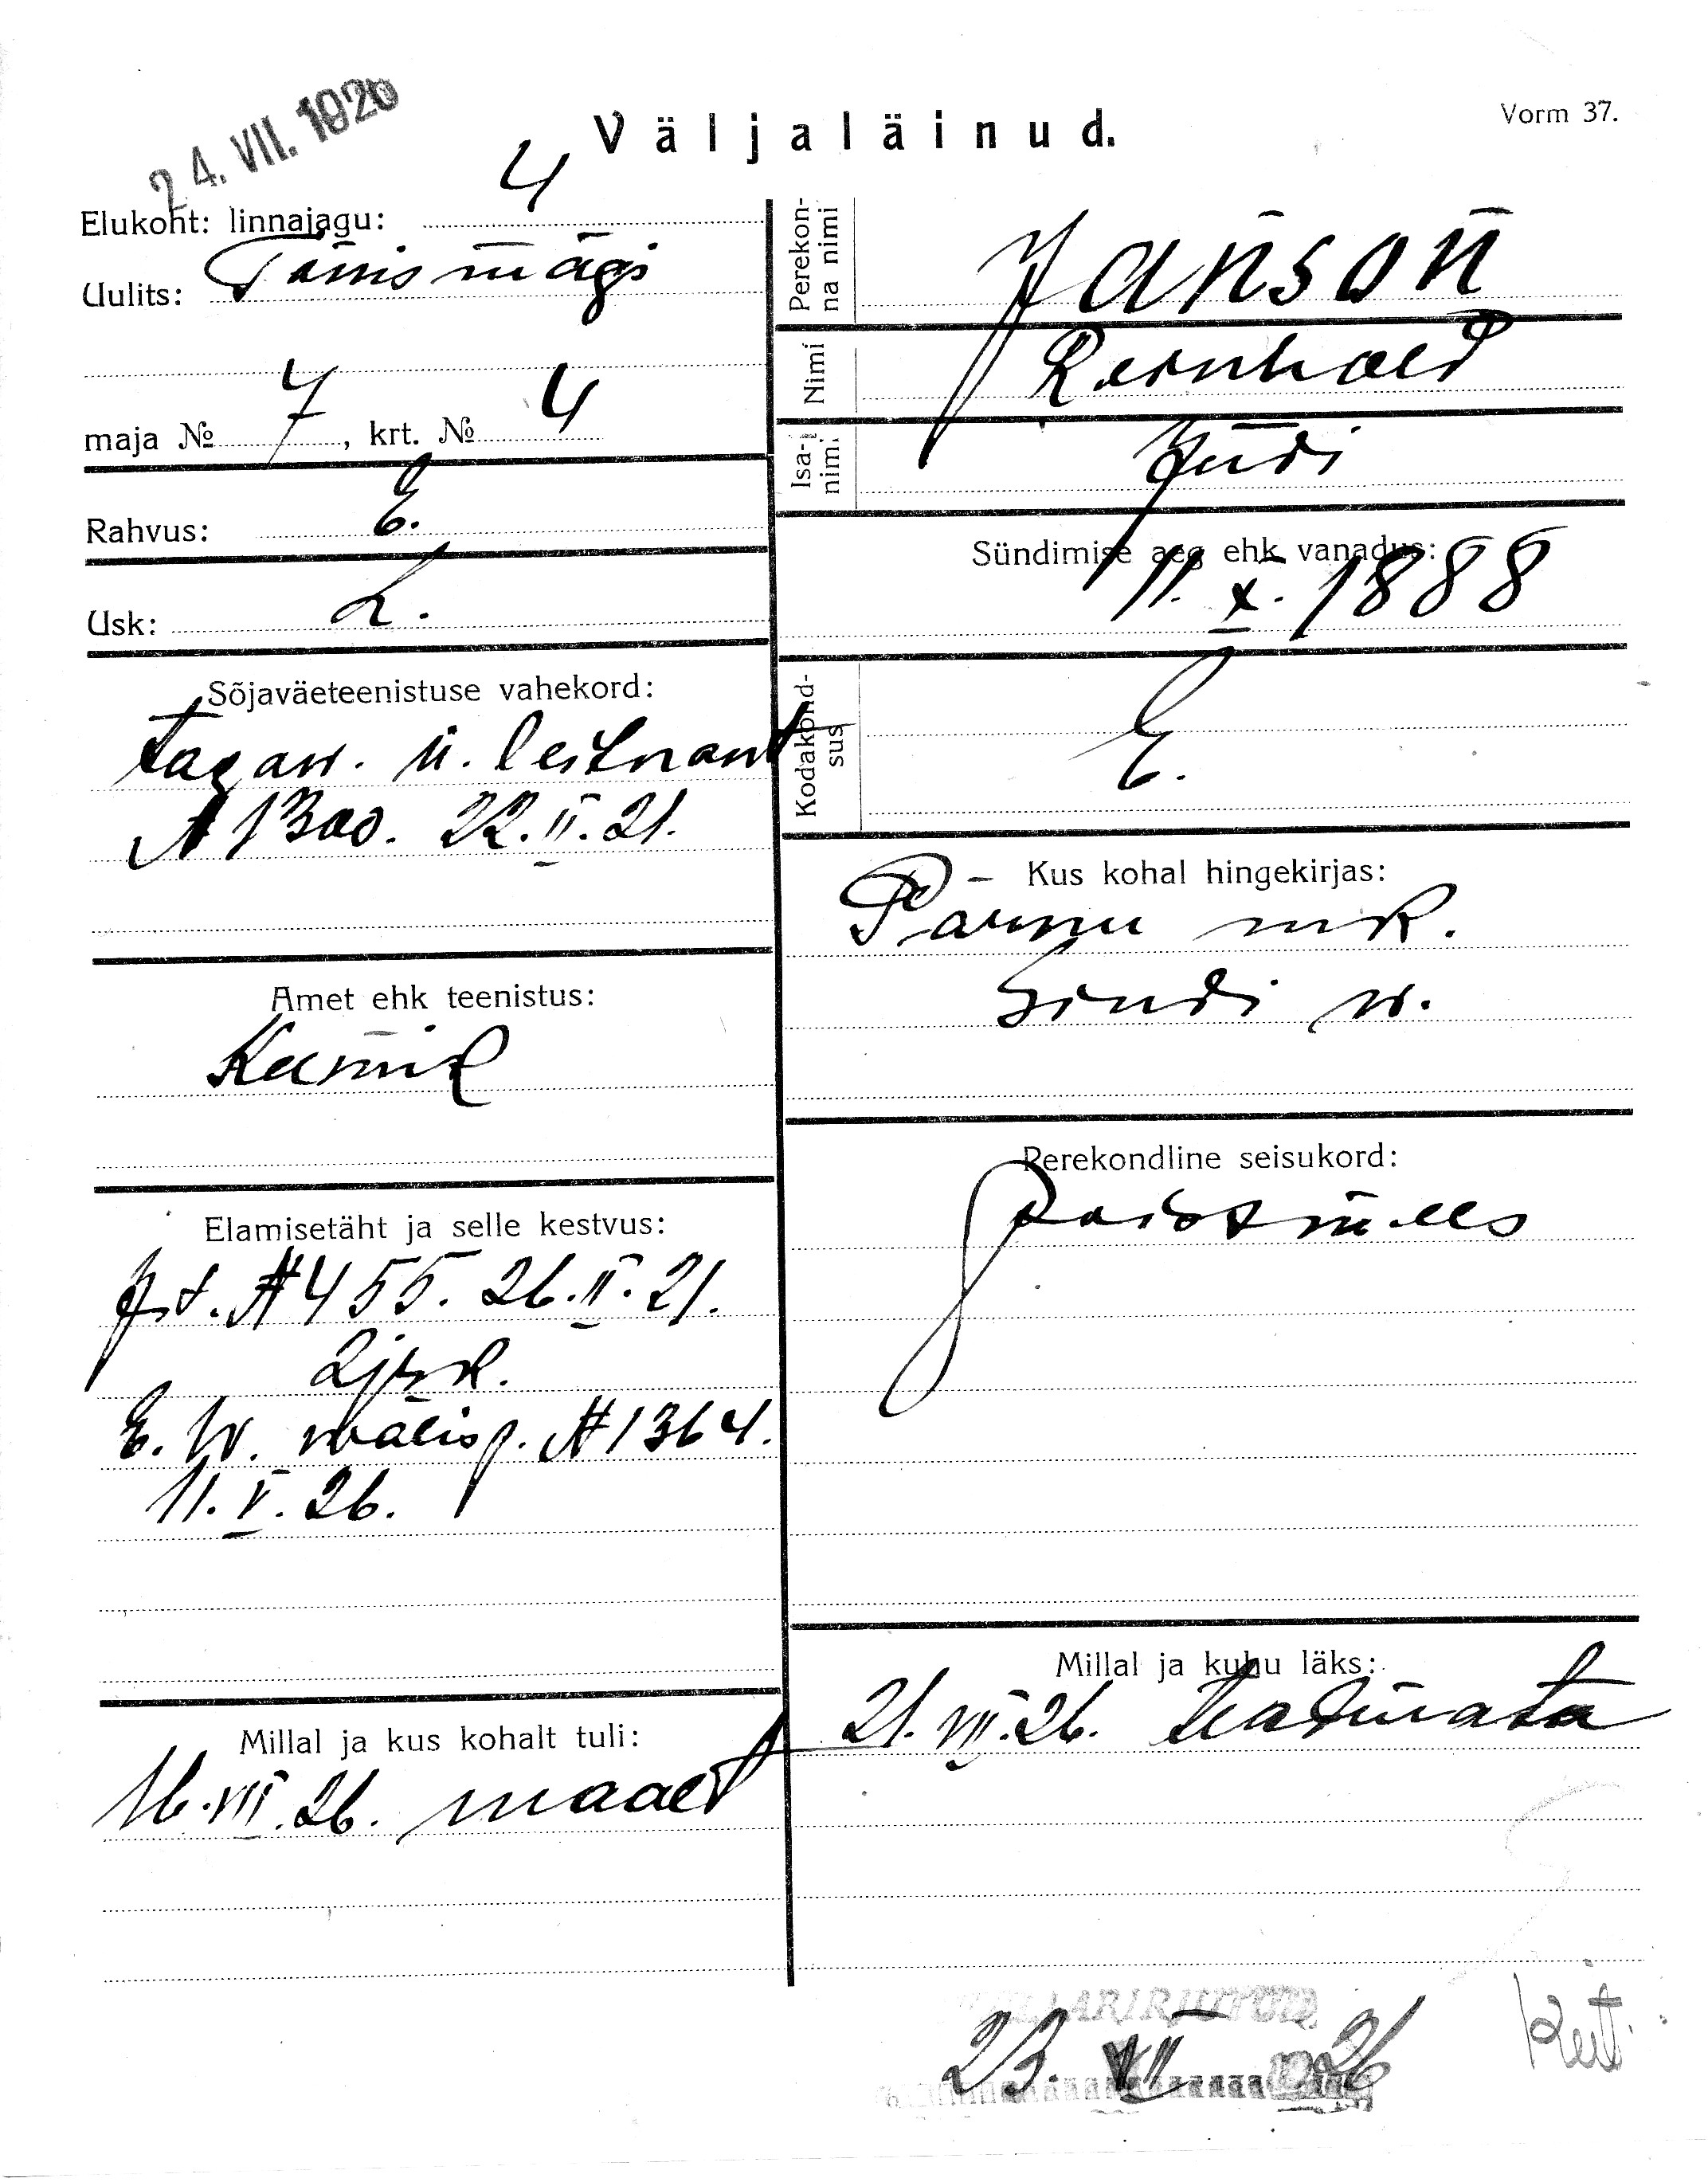 24. VII. 1926
Väljaläinud.
Vorm 37.
Elukoht: linnajagu: 4
Uulits: Tõnismägi
maja № 7, krt. № 4
Rahvus: E.
Usk: L.
Sõjaväeteenistuse vahekord:
tagav. n. leitnant
№ 1300. 22.II.21.
Amet ehk teenistus:
Keemik
Elamisetäht ja selle kestvus:
p.t. № 455. 26.II.21.
2 jsk.
E. W. välisp. № 1364.
11.V.26.
Millal ja kus kohalt tuli:
16.VII.26. maalt
Perekonna nimi
Janson
Nimi
Reinhold
Isanimi
Jüri
Sündimise aeg ehk vanadus:
11.X.1888
Kodakondsus
E.
Kus kohal hingekirjas:
Pärnu mk.
Sindi w.
Perekondline seisukord:
poissmees
Millal ja kuhu läks:
21.VII.26. teatmata
23. VII 26